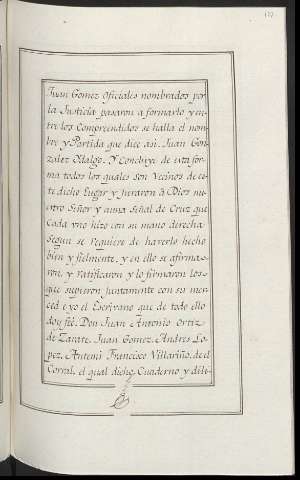 Juan Gomez Oficiales nombrados por
la Justicia pasaron a formarlo y en-
tre los Comprendidos se halla el nom-
bre y Partida que dice asi. Juan Gon-
zalez Hidalgo. Y Concluye de esta for-
ma todos los quales son Vecinos de es-
te dicho Lugar y juraron à Dios nu-
estro Señor y auna Señal de Cruz que
Cada vno hizo con su mano derecha
Segun se requiere de haverlo hecho
bien y fielmente, y en ello se afirma-
ron, y ratificaron y lo firmaron los
que supieron juntamente con su mer-
ced è yo el Escrivano que de todo ello
doy feé. Don Juan Antonio Ortiz
de Zarate. Juan Gomez. Andres Lo-
pez. Antemi Francisco Villariño, de el
Corral, el qual dicho Cuaderno y dili-